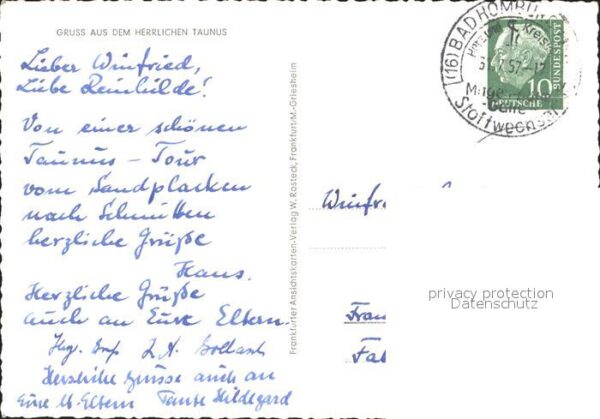 GRUSS AUS DEM HERRLICHEN TAUNUS
Lieber Winfried,
Liebe Reinhilde!
Von einer schönen
Taunus – Tour
vom Sandplacken
nach Schmitten
herzliche Grüße
Hans.
Herzliche Grüße
auch an Eure Eltern.
Herzliche Grüsse auch an
Eure lb. Eltern Tante Hildegard
Frankfurter Ansichtskarten-Verlag W. Rasteck, Frankfurt/M.-Griesheim
(16) BAD HOMBU
Herz und Kreisl
57-17
Mag
Galle
Stoffwechsel
DEUTSCHE
BUNDESPOST
10
Winfr
Fran
Fab
privacy protection
Datenschutz